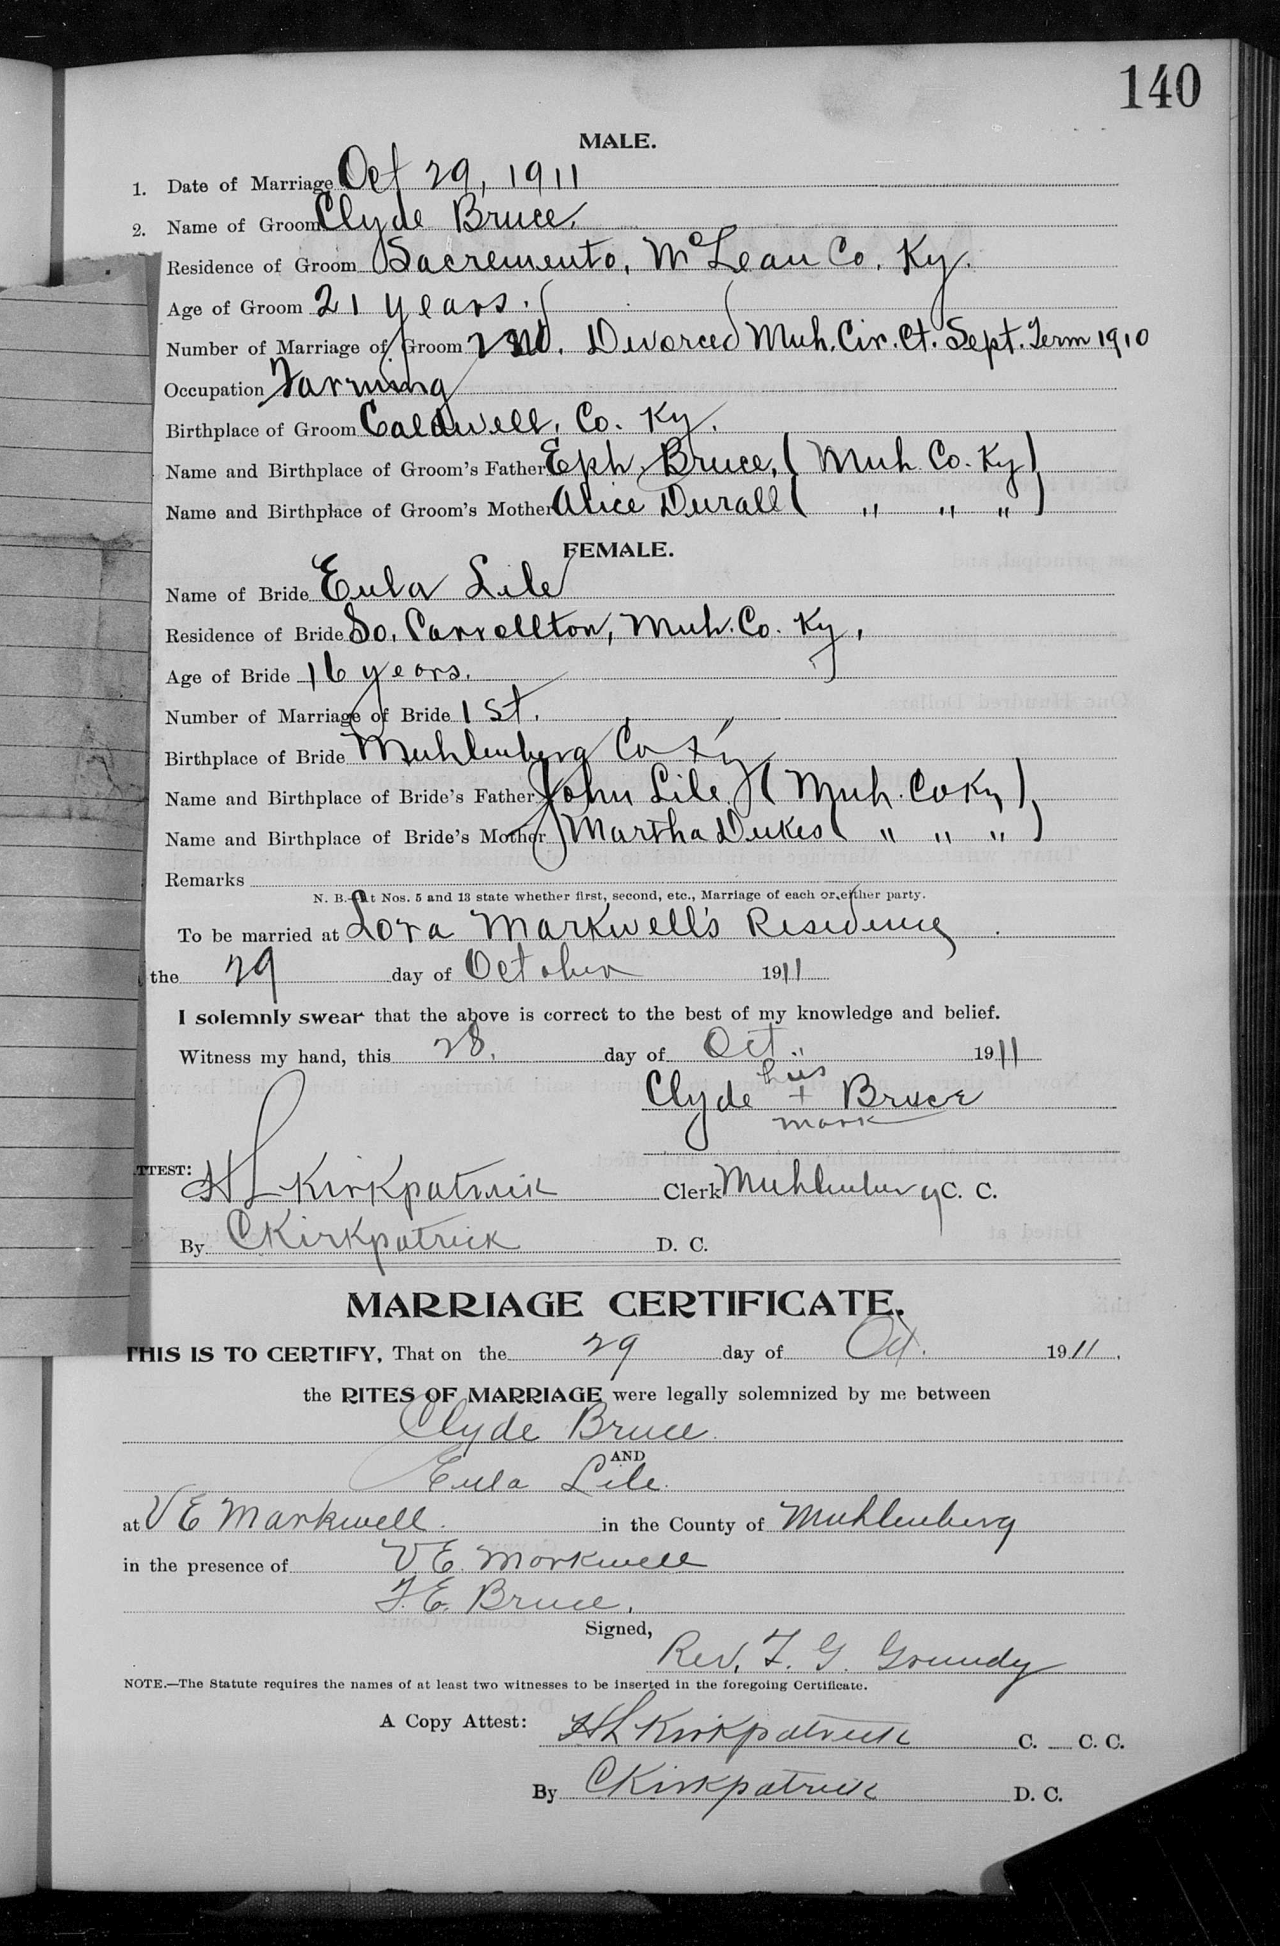 140
MALE.
1. Date of Marriage Oct 29, 1911
2. Name of Groom Clyde Bruce.
Residence of Groom Sacremento, McLean Co. Ky.
Age of Groom 21 years.
Number of Marriage of Groom 2nd. Divorced Muh. Cir. Ct. Sept. Term 1910
Occupation Farming
Birthplace of Groom Caldwell, Co. Ky.
Name and Birthplace of Groom's Father Eph. Bruce, ( Muh. Co. Ky )
Name and Birthplace of Groom's Mother Alice Durall ( " " " )
FEMALE.
Name of Bride Eula Lile
Residence of Bride So. Carrollton, Muh. Co. Ky.
Age of Bride 16 years.
Number of Marriage of Bride 1st.
Birthplace of Bride Muhlenberg Co Ky
Name and Birthplace of Bride's Father John Lile ( Muh. Co Ky ),
Name and Birthplace of Bride's Mother Martha Dukes ( " " " )
Remarks
N. B.—At Nos. 5 and 13 state whether first, second, etc., Marriage of each or either party.
To be married at Lora Markwell's Residence
the 29 day of October 1911
I solemnly swear that the above is correct to the best of my knowledge and belief.
Witness my hand, this 28. day of Oct. 1911
his
Clyde + Bruce
mark
ATTEST: H L Kirkpatrick Clerk Muhlenberg C. C.
By C Kirkpatrick D. C.
MARRIAGE CERTIFICATE.
THIS IS TO CERTIFY, That on the 29 day of Oct. 1911,
the RITES OF MARRIAGE were legally solemnized by me between
Clyde Bruce
AND
Eula Lile.
at V E Markwell. in the County of Muhlenberg
in the presence of V E. Markwell
F. E. Bruce.
Signed,
Rev. F. G. Grundy
NOTE.—The Statute requires the names of at least two witnesses to be inserted in the foregoing Certificate.
A Copy Attest: H L Kirkpatrick C. — C. C.
By C Kirkpatrick D. C.